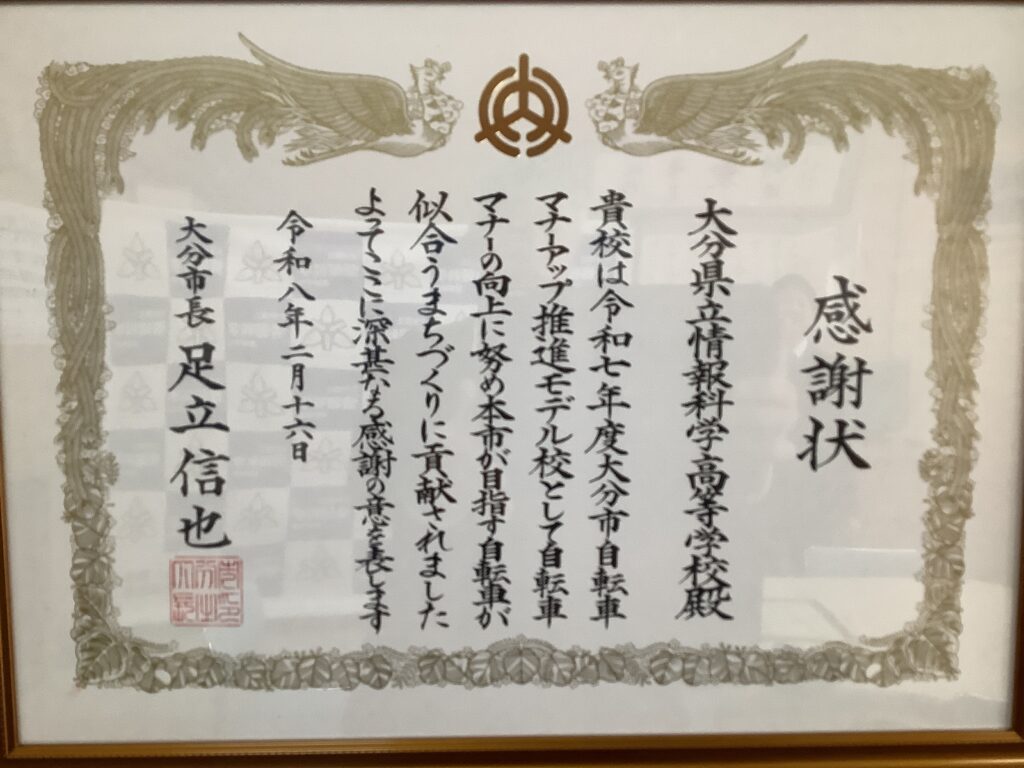 感謝状
大分県立情報科学高等学校殿
貴校は令和七年度大分市自転車
マナーアップ推進モデル校として自転車
マナーの向上に努め本市が目指す自転車が
似合うまちづくりに貢献されました
よってここに深甚なる感謝の意を表します
令和八年二月十六日
大分市長 足立信也